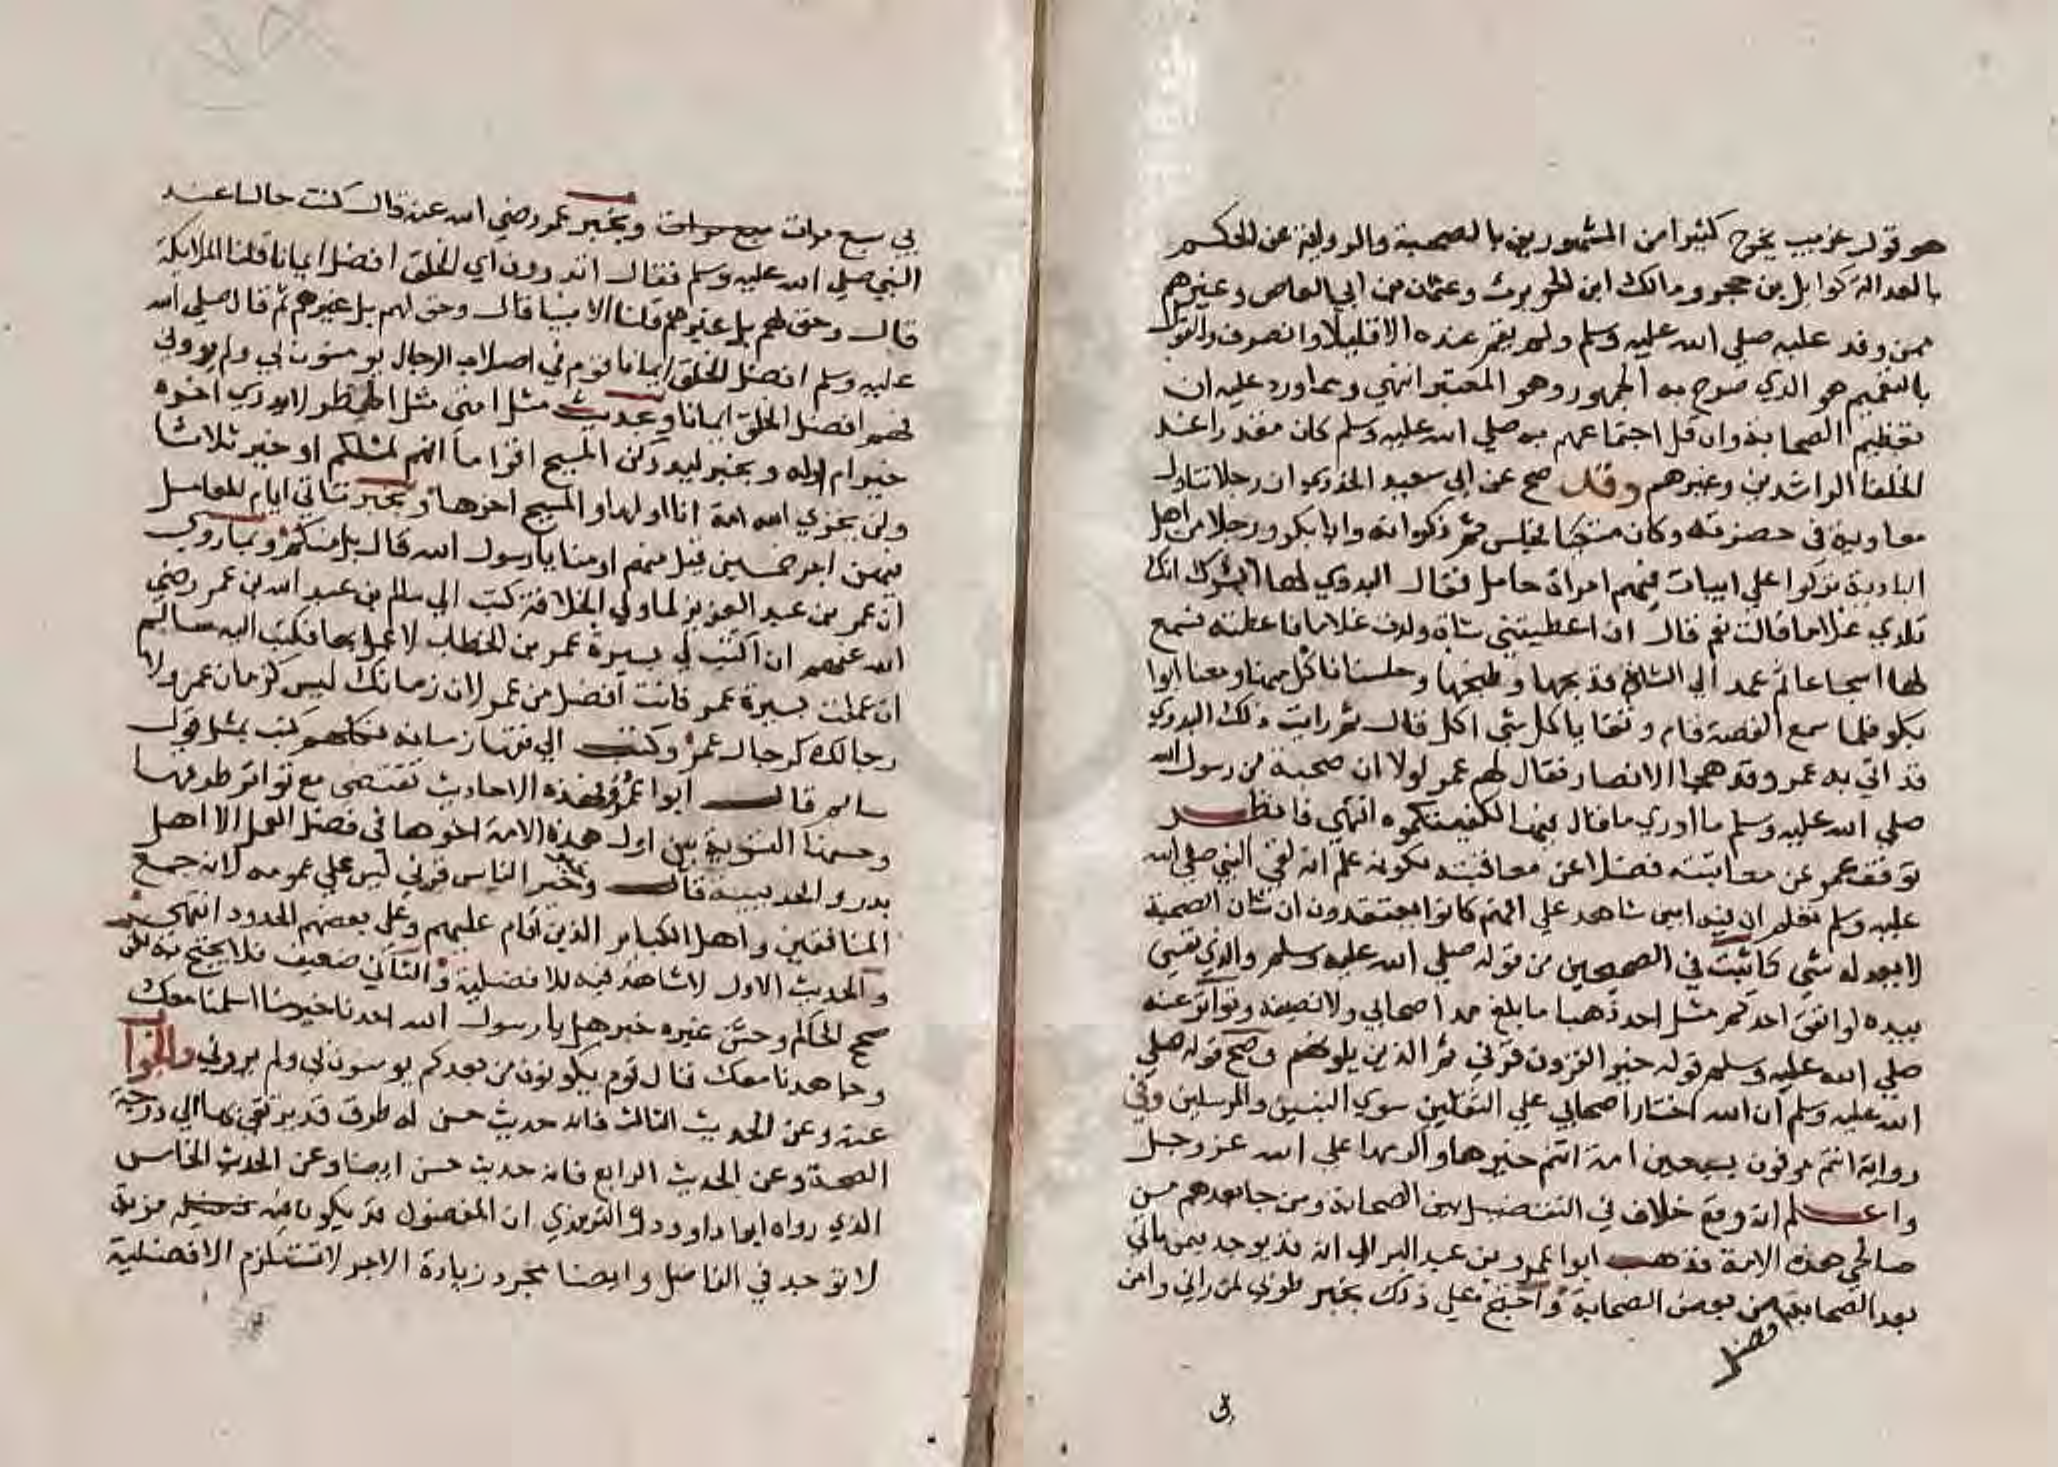 هو قول غريب يخرج كثيرا من المشهورين بالصحبة والرواية عن الحكم
بالعدالة كوايل بن حجر ومالك ابن الحويرث وعثمان بن ابي العاص وغيرهم
ممن وفد عليه صلي الله عليه وسلم ولم يقم عنده الا قليلا وانصرف والقول
بالتعميم هو الذي صرح به الجمهور وهو المعتبر انتهي ومما ورد عليه ان
تعظيم الصحابة وان قل اجتماعهم به صلي الله عليه وسلم كان مقررا عند
الخلفا الراشدين وغيرهم وقد صح عن ابي سعيد الخدري ان رجلا تناول
معاوية في حضرته وكان متكيا فجلس ثم ذكر انه وابا بكر ورجلا من اهل
البادية نزلوا علي ابيات فيهم امراة حامل فقال البدوي لها ابشرك ان
تلدي غلاما قالت نعم قال ان اعطيتني شاة ولدت غلاما فاعطته فسجع
لها اسجاعا ثم عمد الي الشاة فذبحها وطبخها وجلسنا ناكل منها ومعنا ابوا
بكر فلما سمع القصة قام وتقايا كل شي اكل قال ثم رايت ذلك البدوي
قد اتي به عمر وقد هجا الانصار فقال لهم عمر لولا ان صحبة من رسول الله
صلي الله عليه وسلم ما ادري ما قال فيها لكفيتكموه انتهي فانظر
توقف عمر عن معاتبته فضلا عن معاقبته لكونه علم انه لقي النبي صلي الله
عليه وسلم تعلم ان فيه ابين شاهد علي انهم كانوا يعتقدون ان شان الصحبة
لا يعدله شي كما ثبت في الصحيحين من قوله صلي الله عليه وسلم والذي نفسي
بيده لو انفق احدكم مثل احد ذهبا ما بلغ مد اصحابي ولا نصيفه وتواتر عنه
صلي الله عليه وسلم قوله خير القرون قرني ثم الذين يلونهم وصح قوله صلي
الله عليه وسلم ان الله اختار اصحابي علي الثقلين سوي النبيين والمرسلين وفي
رواية انتم موفون سبعين امة انتم خيرها واكرمها علي الله عز وجل
واعلم انه وقع خلاف في التفضيل بين الصحابة ومن جا بعدهم من
صالحي هذه الامة فذهب ابوا عمر بن عبد البر الي انه قد يوجد فيمن ياتي
بعد الصحابة من بعض الصحابة واحتج علي ذلك بخبر طوبي لمن راني وامن
افضل
بي سبع مرات سبع مرات وبخبر عمر رضي الله عنه قال كنت جالسا عند
النبي صلي الله عليه وسلم فقال اتدرون اي الخلق افضل ايمانا قلنا الملايكة
قال وحق لهم بل غيرهم قلنا الانبيا قال وحق لهم بل غيرهم ثم قال صلي الله
عليه وسلم افضل الخلق ايمانا قوم في اصلاب الرجال يومنون بي ولم يروني
فهم افضل الخلق ايمانا وبحديث مثل امتي مثل المطر لا يدري اخره
خير ام اوله وبخبر ليدركن المسيح اقواما انهم لمثلكم او خير ثلاثا
ولن يخزي الله امة انا اولها والمسيح اخرها وبخبر تاتي ايام للعامل
فيهن اجر خمسين قيل منهم او منا يا رسول الله قال بل منكم وبما روي
ان عمر بن عبد العزيز لما ولي الخلافة كتب الي سالم بن عبد الله بن عمر رضي
الله عنهم ان اكتب لي بسيرة عمر بن الخطاب لاعمل بها فكتب اليه سالم
ان عملت بسيرة عمر فانت افضل من عمر لان زمانك ليس كزمان عمر ولا
رجالك كرجال عمر وكتب الي فقها زمانه فكلهم كتب بمثل قول
سالم قال ابوا عمر فهذه الاحاديث تقتضي مع تواتر طرقها
وحسنها التسوية بين اول هذه الامة واخرها في فضل العمل الا اهل
بدر والحديبية قال وخبر خير الناس قرني ليس علي عمومه لانه جمع
المنافقين واهل الكباير الذين اقام عليهم وعلي بعضهم الحدود انتهي
والحديث الاول لا شاهد فيه للافضلية والثاني ضعيف فلا يحتج به لكن
صحح الحاكم وحسن غيره خبر هل يا رسول الله احدنا خير منا اسلمنا معك
وجاهدنا معك قال قوم يكونون من بعدكم يومنون بي ولم يروني والجوا
عنه وعن الحديث الثالث فانه حديث حسن له طرق قد يرتقي بها الي درجة
الصحة وعن الحديث الرابع فانه حديث حسن ايضا وعن الحديث الخامس
الذي رواه ابوا داوود والترمذي ان المفضول قد يكون فيه مزية
لا توجد في الفاضل وايضا مجرد زيادة الاجر لا تستلزم الافضلية